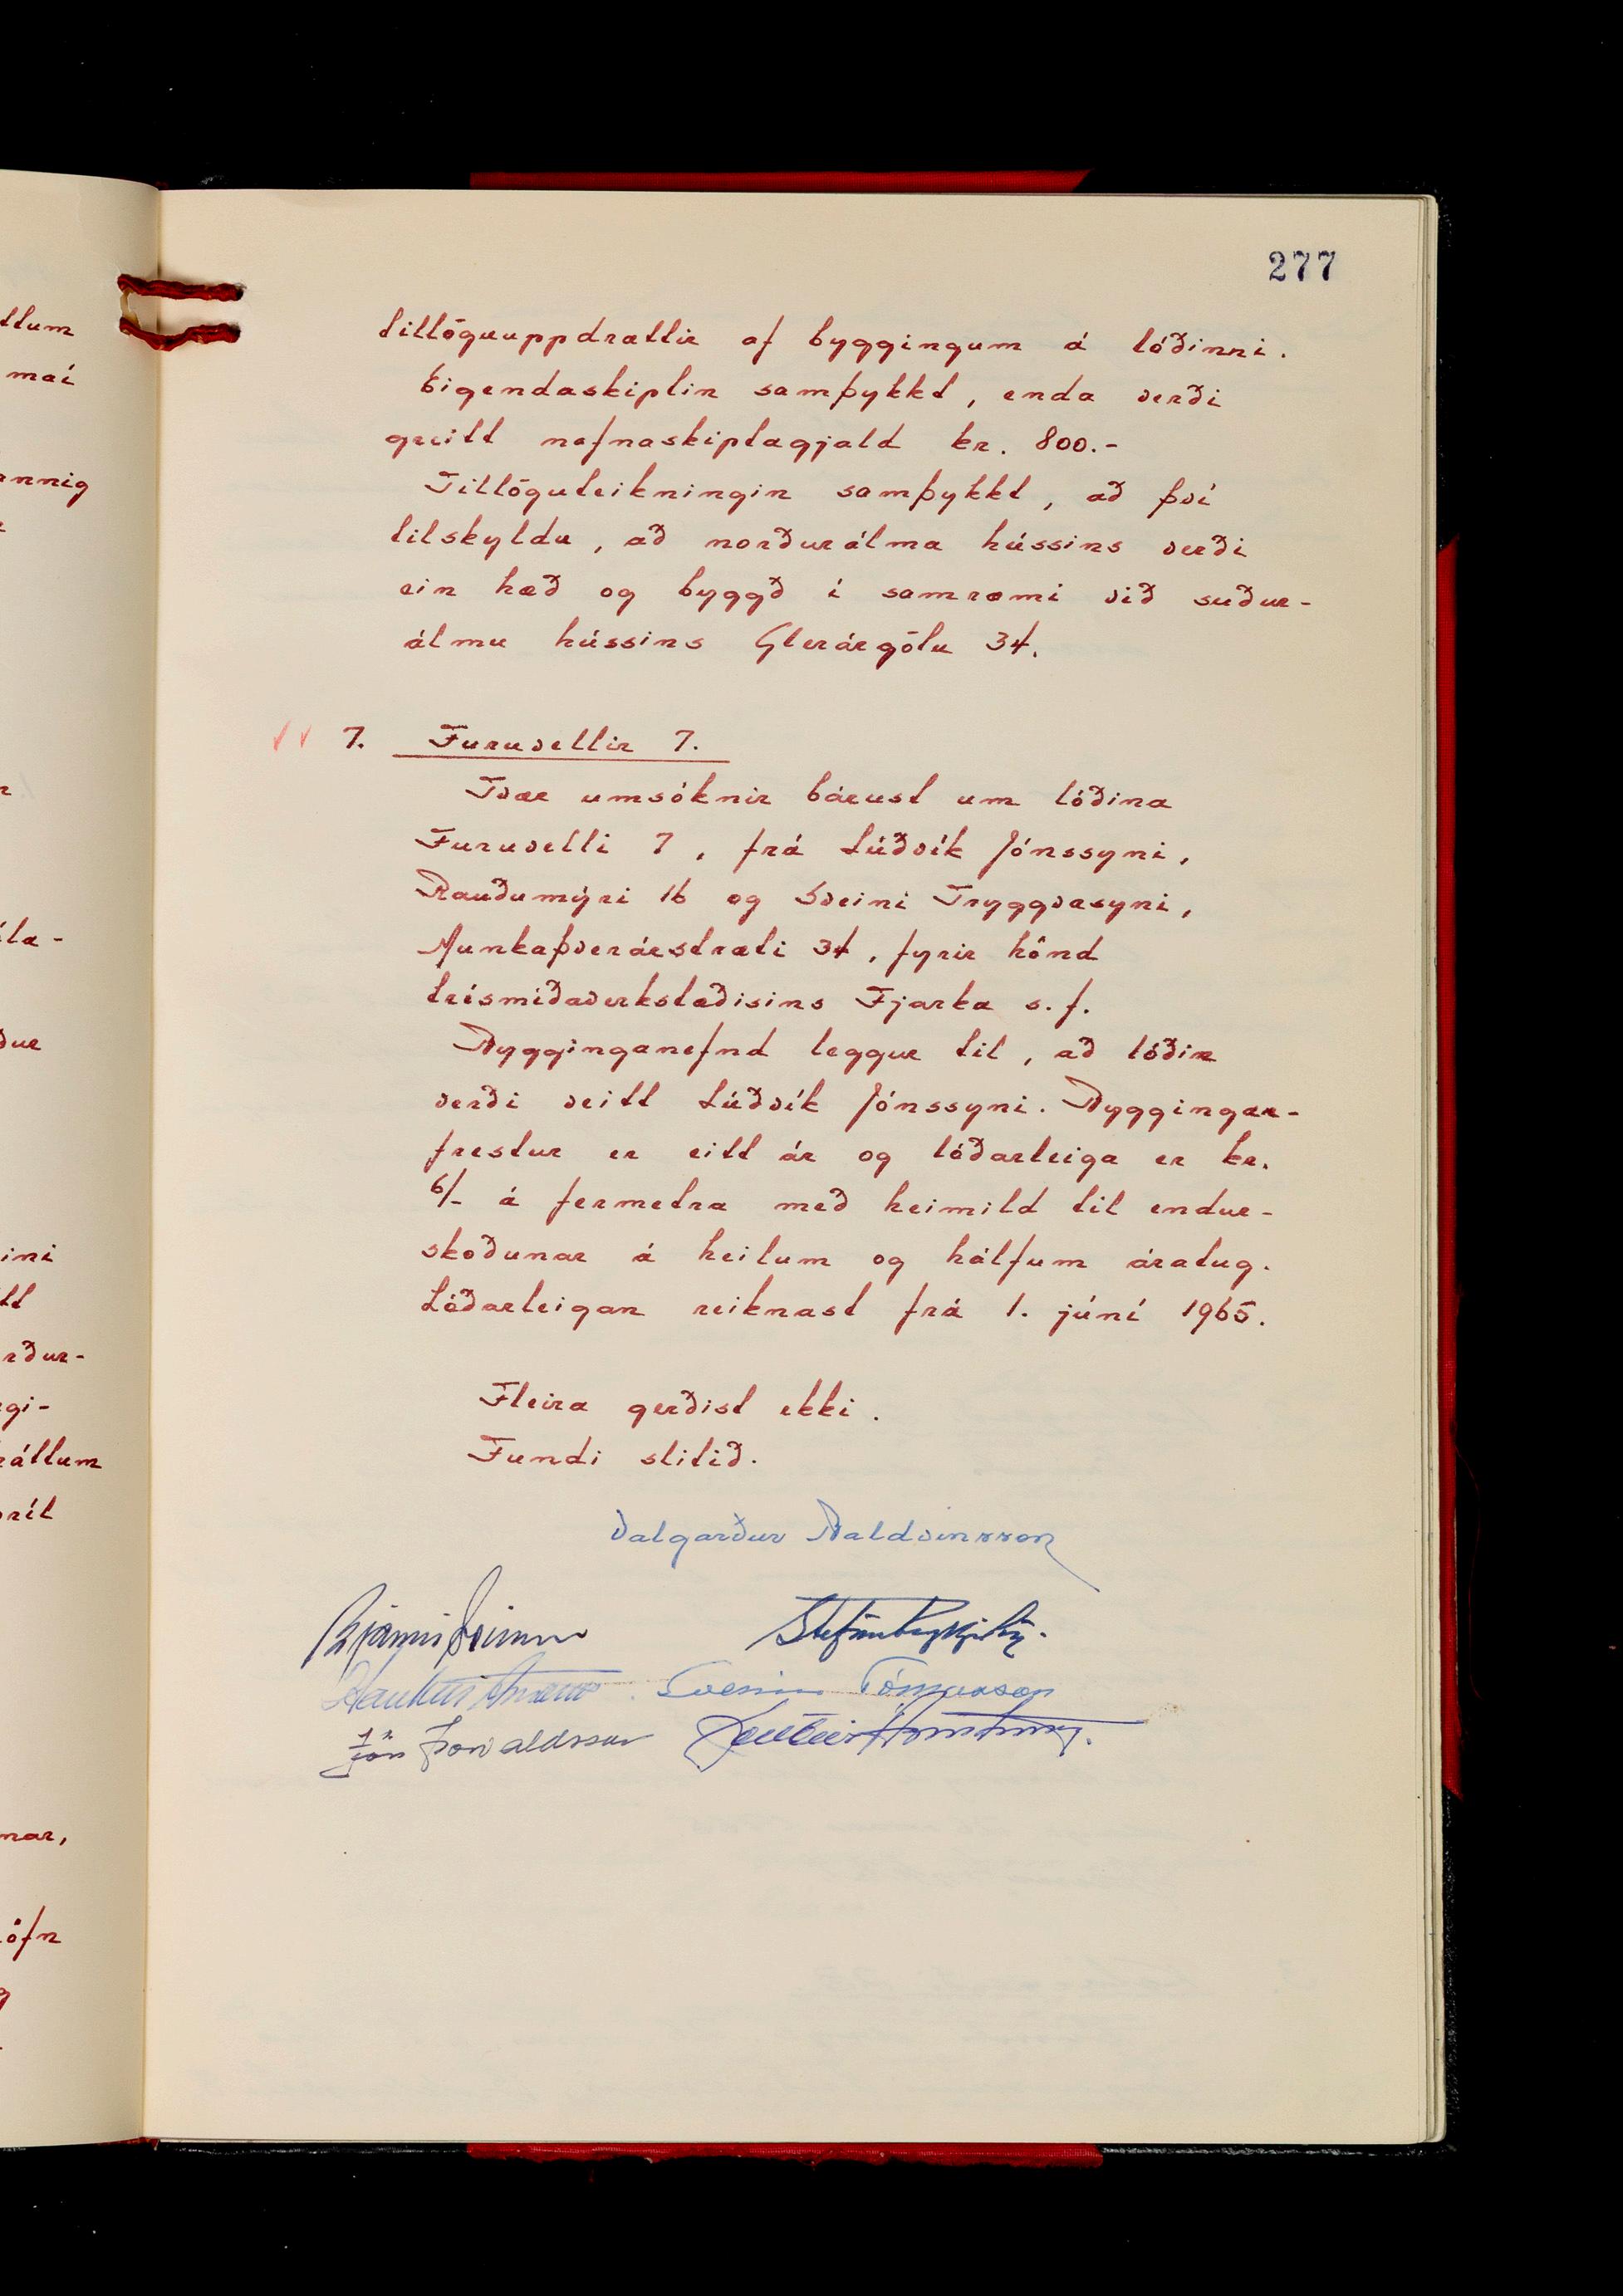 277
tillöguuppdrættir af byggingum á lóðinni.
Eigendaskiptin samþykkt, enda verði
greitt nafnaskiptagjald kr. 800.-
Tillöguteikningin samþykkt, að því
tilskyldu, að norðurálma hússins verði
ein hæð og byggð í samræmi við suður-
álmu hússins Glerárgötu 34.
7. Furuvellir 7.
Tvær umsóknir bárust um lóðina
Furuvelli 7, frá Lúðvík Jónssyni,
Rauðumýri 16 og Sveini Tryggvasyni,
Munkaþverárstræti 34, fyrir hönd
trésmíðaverkstæðisins Fjarka s.f.
Bygginganefnd leggur til, að lóðin
verði veitt Lúðvík Jónssyni. Byggingar-
frestur er eitt ár og lóðarleiga er kr.
6/- á fermetra með heimild til endur-
skoðunar á heilum og hálfum áratug.
Lóðarleigan reiknast frá 1. júní 1965.
Fleira gerðist ekki.
Fundi slitið.
Valgarður Baldvinsson
Bjarni Stefán Reykjalín
Haukur Árnason Sveinn Tómasson
Jón Þorvaldsson
ttum
maí
annig
íla-
ður
ini
tt
rður-
gi-
ráttum
príl
nar,
öfn
g